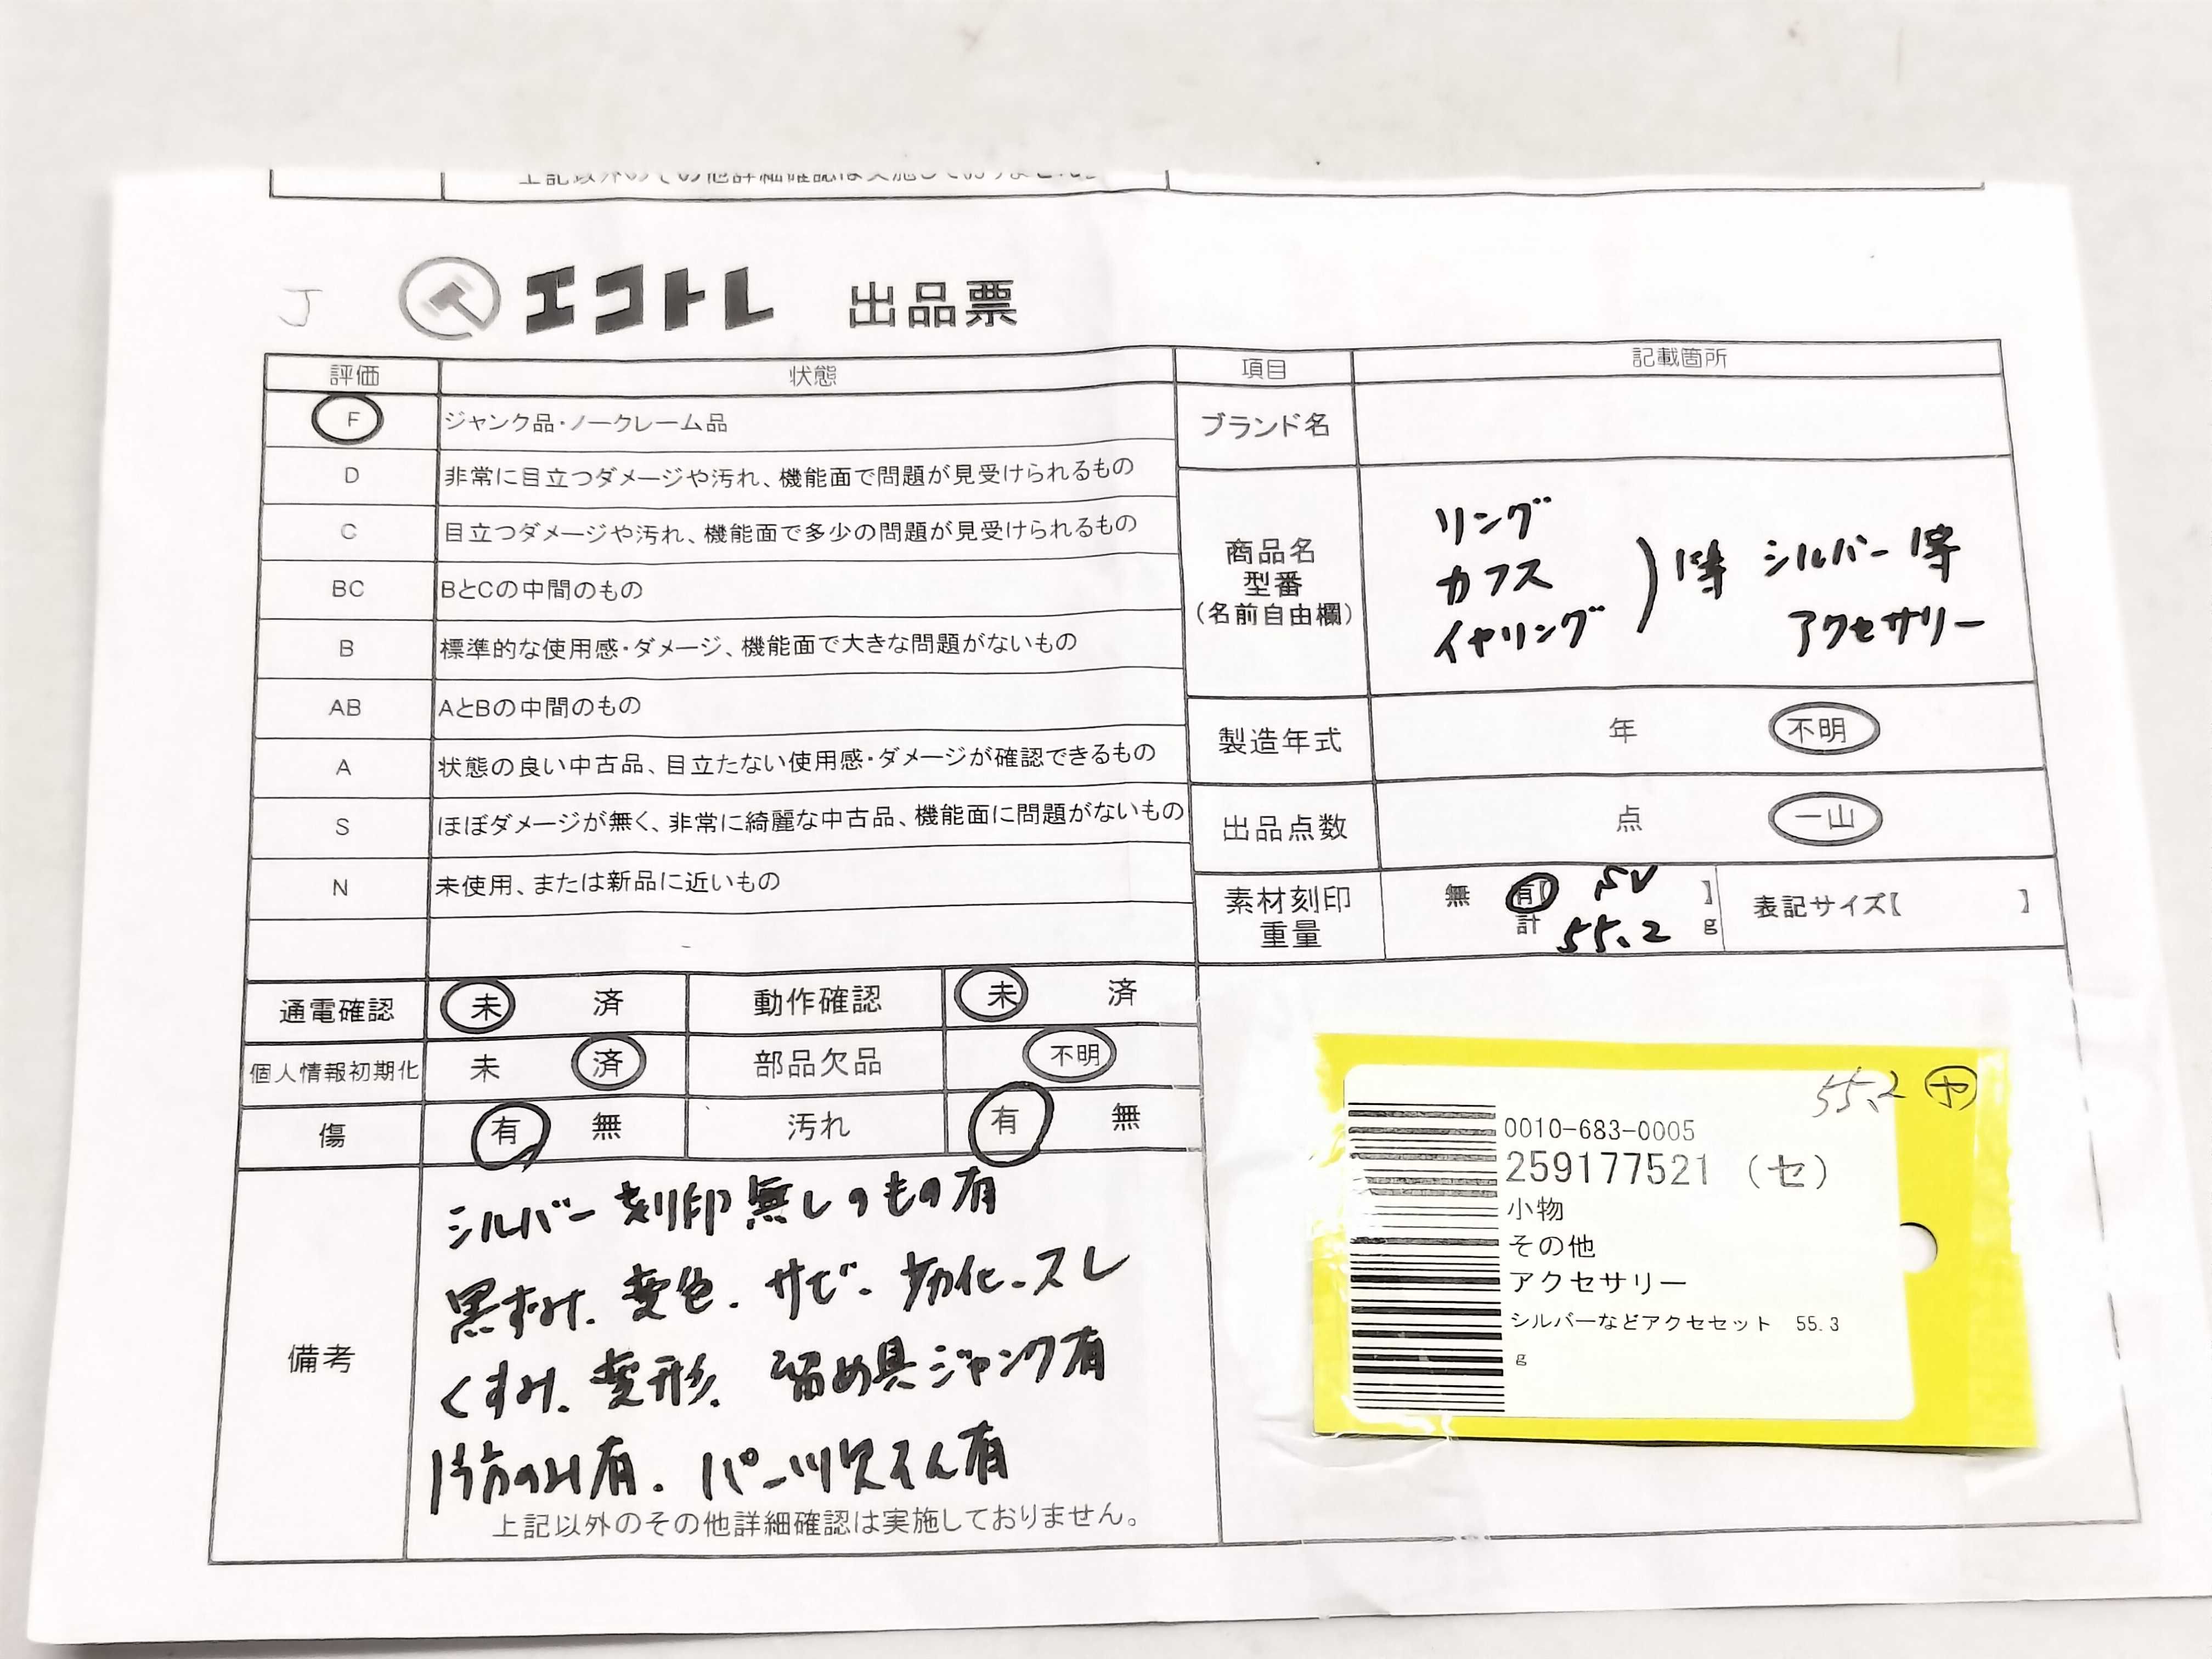 上記以外のその他詳細確認は実施しておりません。
J
エコトレ 出品票
評価 状態
F ジャンク品・ノークレーム品
D 非常に目立つダメージや汚れ、機能面で問題が見受けられるもの
C 目立つダメージや汚れ、機能面で多少の問題が見受けられるもの
BC BとCの中間のもの
B 標準的な使用感・ダメージ、機能面で大きな問題がないもの
AB AとBの中間のもの
A 状態の良い中古品、目立たない使用感・ダメージが確認できるもの
S ほぼダメージが無く、非常に綺麗な中古品、機能面に問題がないもの
N 未使用、または新品に近いもの
通電確認 未 済 動作確認 未 済
個人情報初期化 未 済 部品欠品 不明
傷 有 無 汚れ 有 無
備考
シルバー刻印無しのもの有
黒ずみ、変色、サビ、劣化、スレ
くすみ、変形、留め具ジャンク有
片方のみ有、パーツ欠そん有
上記以外のその他詳細確認は実施しておりません。
項目 記載箇所
ブランド名
商品名
型番
(名前自由欄)
リング
カフス
イヤリング
等 シルバー等
アクセサリー
製造年式 年 不明
出品点数 点 一山
素材刻印 無 有【 SV 】
重量 計 55.2 g
表記サイズ【 】
55.2 ヤ
0010-683-0005
259177521 (セ)
小物
その他
アクセサリー
シルバーなどアクセセット 55.3
g